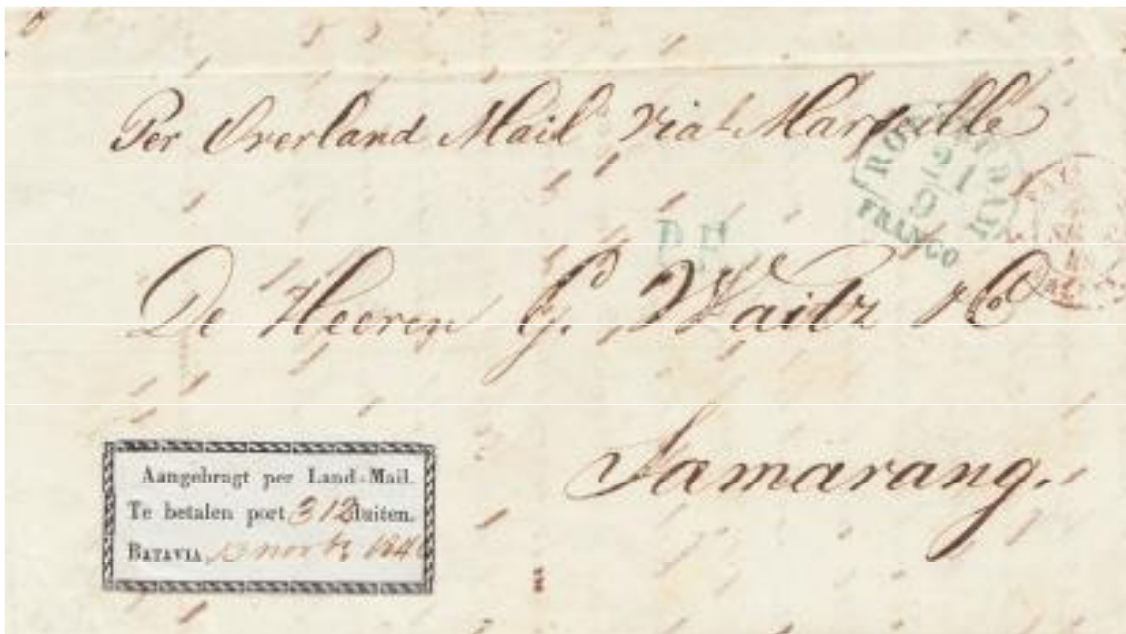 Per Overland Mail via Marseille
ROTTERDAM
21
9
FRANCO
De Heeren G. Waitz & Co
Samarang.
Aangebragt per Land-Mail.
Te betalen port 312 duiten.
BATAVIA